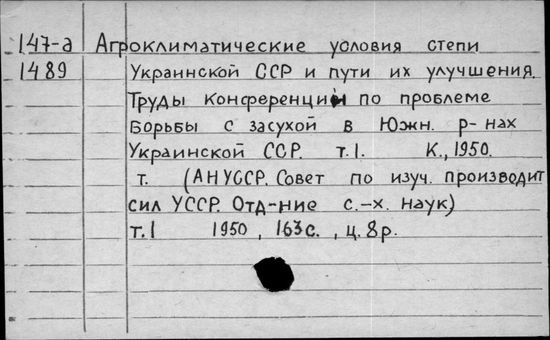 147-д Агроклиматические условия степи
1489 Украинской ССР и пути их улучшения.
Труды конференции по проблеме
борьбы с засухой в Южн. р-нах
Украинской ССР. т.1. К., 1950.
т. (АН УССР. Совет по изуч. производит
сил УССР. Отд-ние с.-х. наук)
т.1 1950, 163с., ц. 8р.